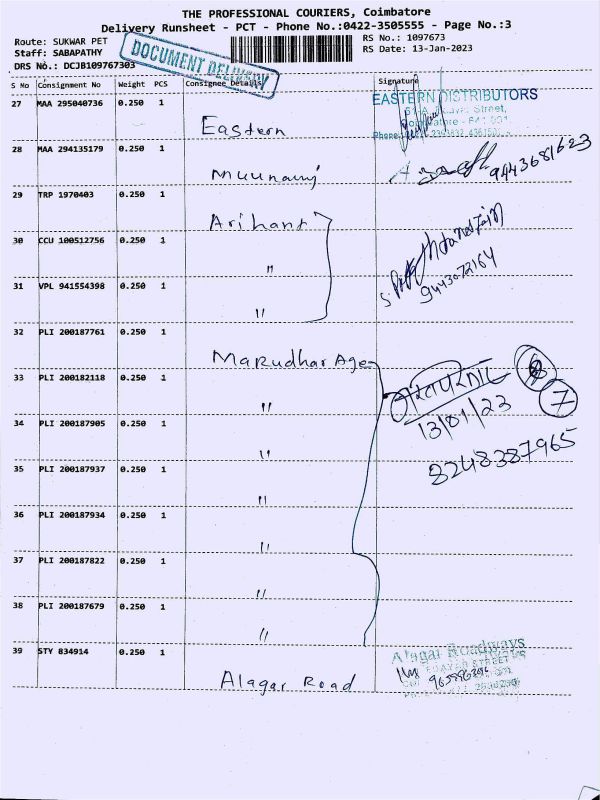 THE PROFESSIONAL COURIERS, Coimbatore
Delivery Runsheet - PCT - Phone No.:0422-3505555 - Page No.:3
Route: SUKWAR PET
RS No.: 1097673
Staff: SABAPATHY
RS Date: 13-Jan-2023
DRS No.: DCJB109767303
DOCUMENT DELIVERY
S No Consignment No Weight PCS Consignee Details Signature
27 MAA 295040736 0.250 1
Eastern
EASTERN DISTRIBUTORS
28 MAA 294135179 0.250 1
9443681623
29 TRP 1970403 0.250 1
Arihant
30 CCU 100512756 0.250 1
"
9443072164
31 VPL 941554398 0.250 1
"
32 PLI 200187761 0.250 1
Marudhar Age
33 PLI 200182118 0.250 1
"
7
13/01/23
34 PLI 200187905 0.250 1
"
8248387965
35 PLI 200187937 0.250 1
"
36 PLI 200187934 0.250 1
"
37 PLI 200187822 0.250 1
"
38 PLI 200187679 0.250 1
"
39 STY 834914 0.250 1
Alagar Road
Alagar Roadways